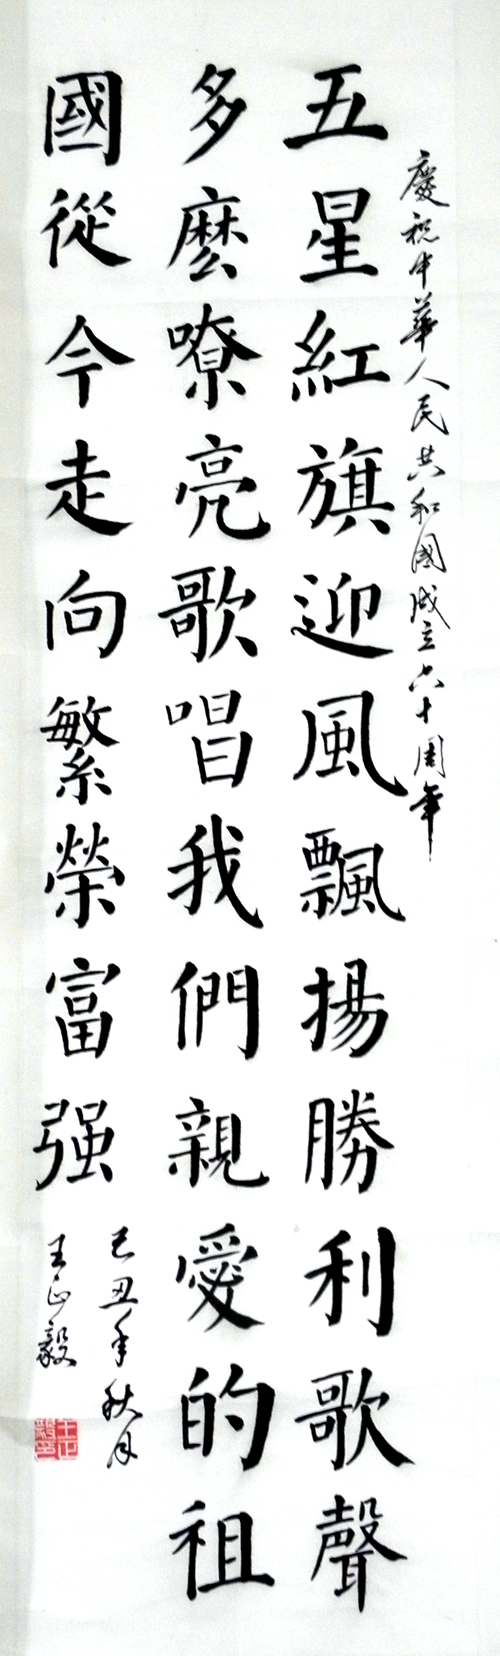 慶祝中華人民共和國成立六十周年
五星紅旗迎風飄揚勝利歌聲
多麼嘹亮歌唱我們親愛的祖
國從今走向繁榮富强
己丑年秋月
王正毅
王正毅印